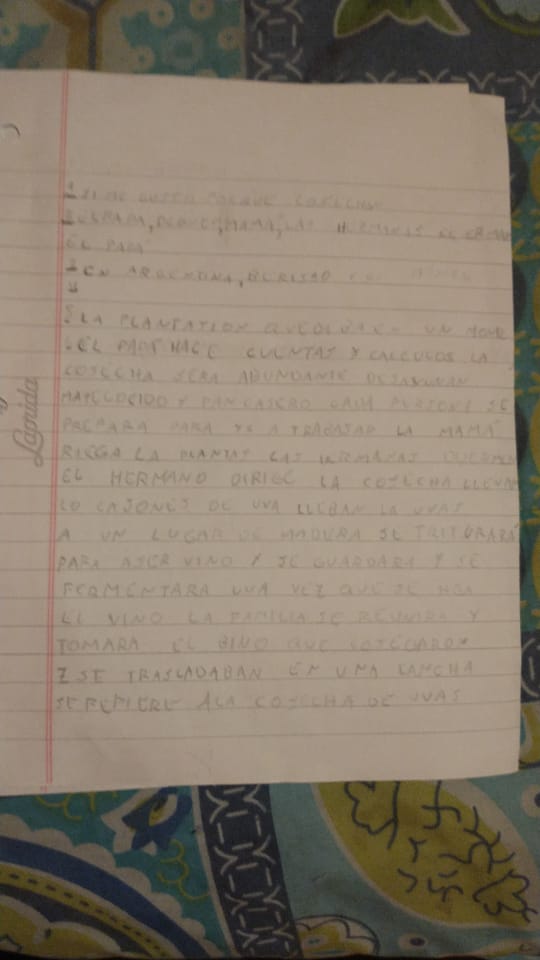 1 SI ME GUSTO PORQUE COSECHAN
2 EL PAPA, MAMÁ, LAS HERMANAS EL
EL PAPÁ
3 EN ARGENTINA, BERISSO
4
5 LA PLANTATION UN
6 EL PADR HACE CUENTAS Y CALCULOS LA
COSECHA SERA ABUNDANTE DESAYUNAN
MATECOCIDO Y PAN CASERO CADA PERSONA SE
PREPARA PARA A TRABAJAR LA MAMÁ
RIEGA LA PLANTAS LAS HERMANAS
EL HERMANO DIRIGE LA COSECHA LLEVAN
LO CAJONES DE UVA LLEBAN LA UVAS
A UN LUGAR DE MADURA SE TRITURARA
PARA ASER VINO Y SE GUARDARA Y SE
FERMENTARA UNA VEZ QUE SE
EL VINO LA FAMILIA SE REUNIRA Y
TOMARA EL BINO QUE COSECHARON
7 SE TRASLADABAN EN UNA LANCHA
SE REFIERE A LA COSECHA DE UVAS
Laprida